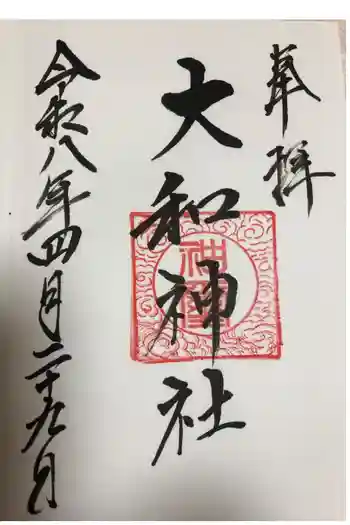 奉拝
大和神社
令和八年四月二十九日